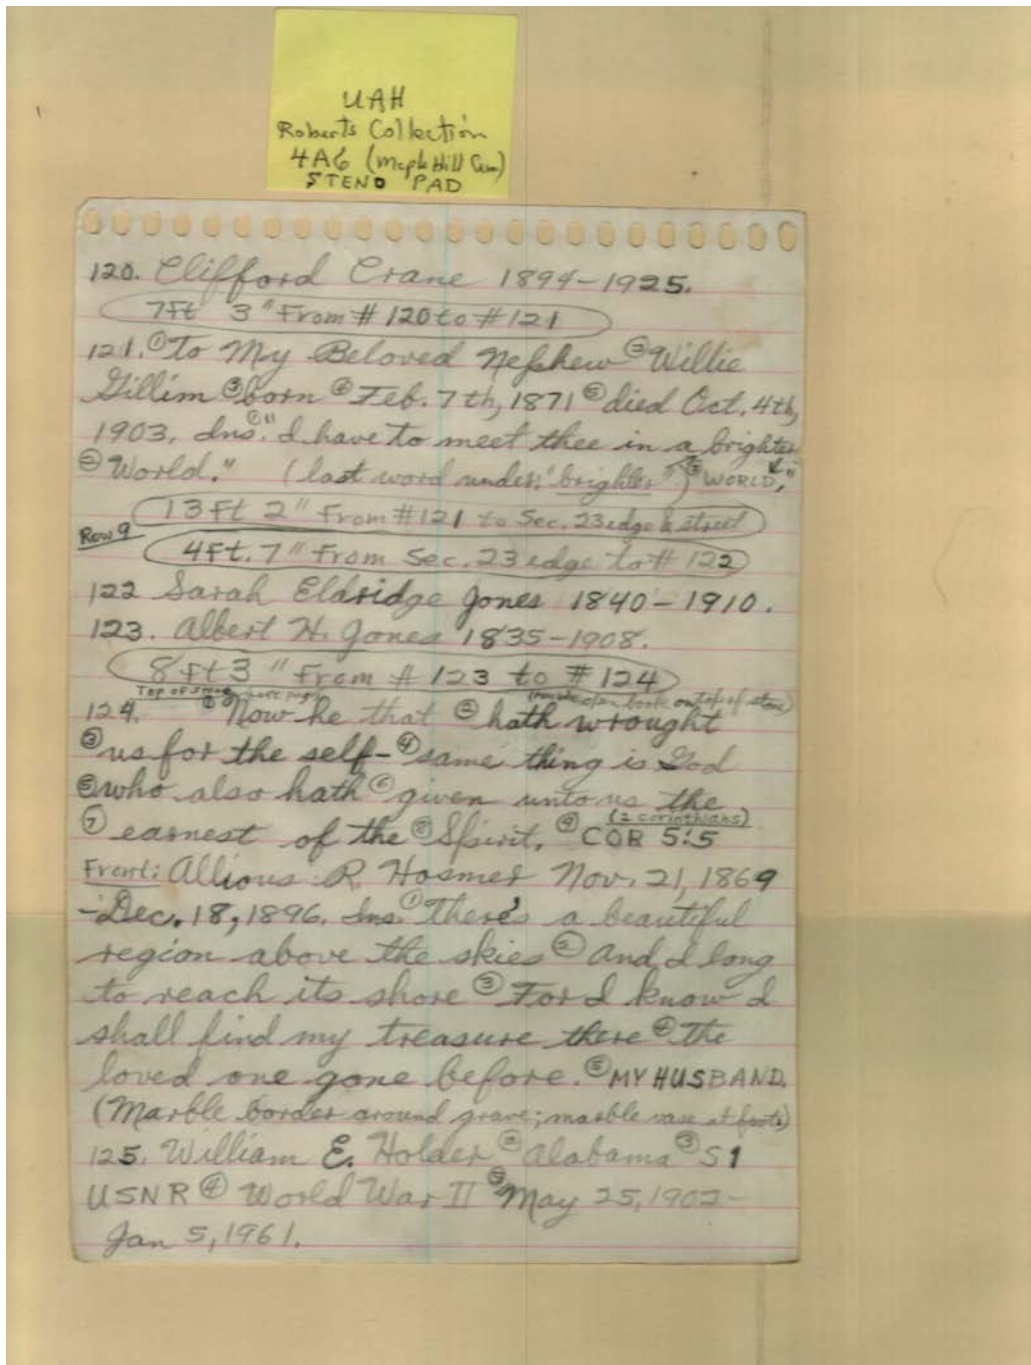 UAH
Roberts Collection
4A6 (Maple Hill Cem)
STENO PAD
120. Clifford Crane 1894-1925.
7Ft 3" From # 120 to # 121
121. ① To My Beloved Nephew ② Willie
Gillim ③ born ④ Feb. 7th, 1871 ⑤ died Oct. 4th,
1903. Ins. ① "I have to meet thee in a brighter
② World." (last word under: "brighter") ② WORLD."
13 Ft 2" From #121 to Sec. 23 edge & street
Row 9
4Ft. 7" From Sec. 23 edge to # 122
122 Sarah Eldridge Jones 1840-1910.
123. Albert H. Jones 1835-1908.
8 Ft 3" From # 123 to # 124
Top of stone open book on top of stone)
124. ① "Now he that ② hath wrought
③ us for the self- ④ same thing is God
⑤ who also hath ⑥ given unto us the
⑦ earnest of the ⑧ Spirit. ⑨ (2 corinthians) COR 5:5
Front: Allious R. Hosmer Nov. 21, 1869
-Dec. 18, 1896. Ins. ① There's a beautiful
region above the skies ② And I long
to reach its shore ③ For I know I
shall find my treasure there ④ The
loved one gone before. ⑤ MY HUSBAND.
(Marble border around grave; marble vase at foot)
125. William E. Holder ② Alabama ③ S1
USNR ④ World War II ⑤ May 25, 1902-
Jan 5, 1961.